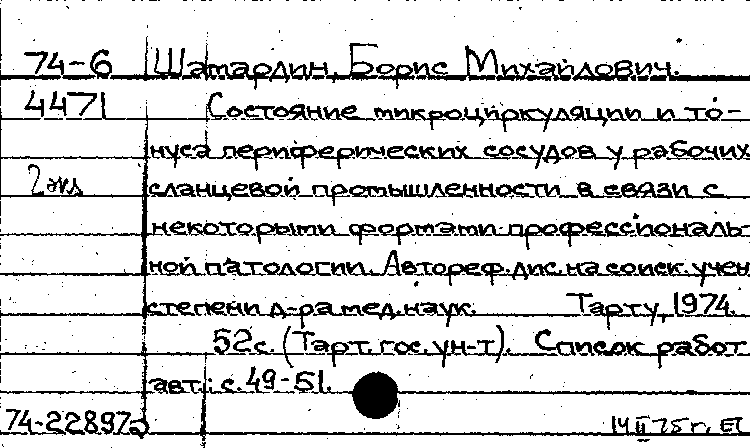 74-6 Шамардин, Борис Михайлович.
4471 Состояние микроциркуляции и то-
нуса периферических сосудов у рабочих
2 экз сланцевой промышленности в связи с
некоторыми формами профессиональ-
ной патологии. Автореф. дис. на соиск. учен
степени д-ра мед. наук. Тарту, 1974.
52с. (Тарт. гос. ун-т). Список работ
авт.: с. 49-51.
74-22897а 14 II 75 г.